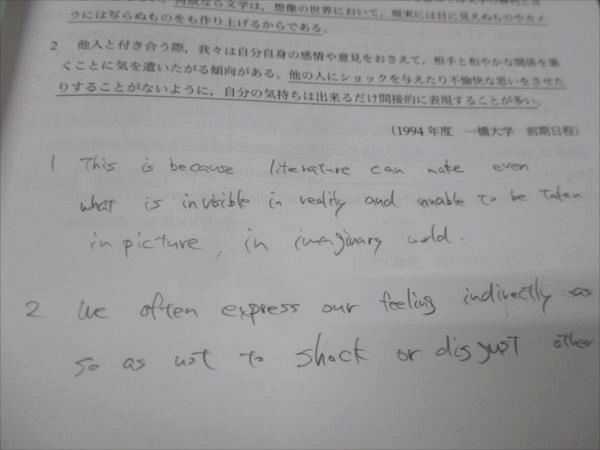 何故なら文学は，想像の世界において，現実には目に見えぬものやカメ
ラには写らぬものをも作り上げるからである。
2 他人と付き合う際，我々は自分自身の感情や意見をおさえて，相手と和やかな関係を築
くことに気を遣いたがる傾向がある。他の人にショックを与えたり不愉快な思いをさせた
りすることがないように，自分の気持ちは出来るだけ間接的に表現することが多い。
(1994 年度 一橋大学 前期日程)
1 This is because literature can make even
what is invisible in reality and unable to be taken
in picture, in imaginary world.
2 We often express our feeling indirectly so
so as not to shock or disgust other